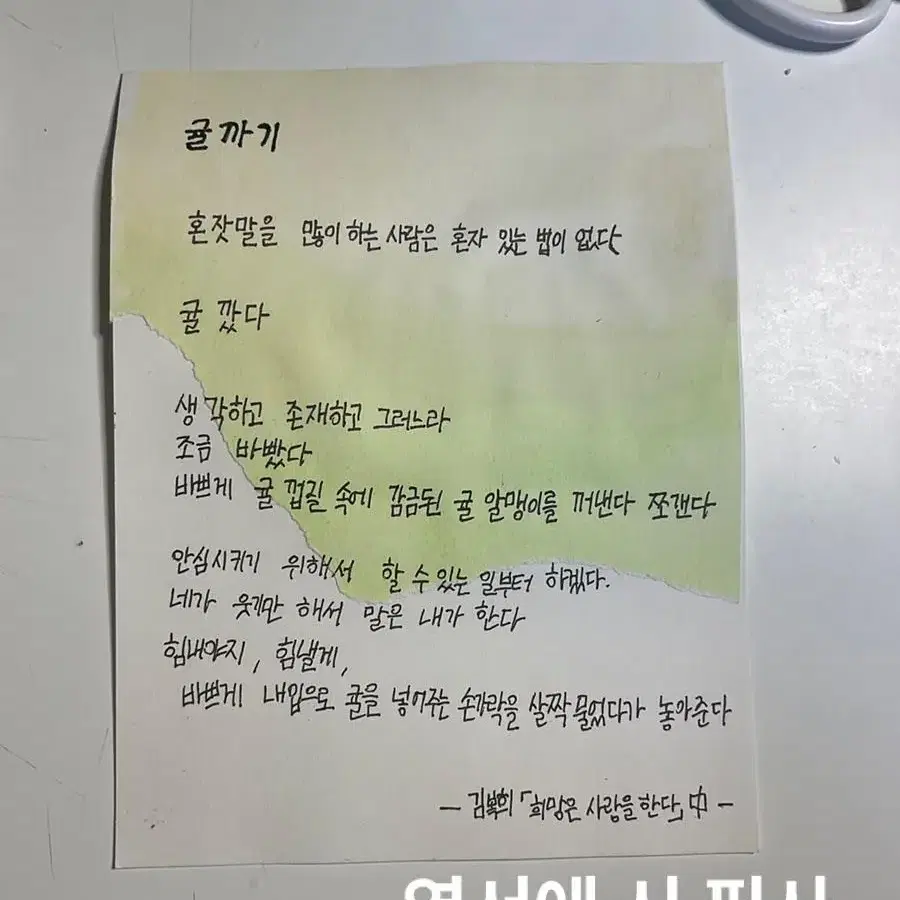 귤까기
혼잣말을 많이 하는 사람은 혼자 있는 법이 없다
귤 깠다
생각하고 존재하고 그러느라
조금 바빴다
바쁘게 귤 껍질 속에 감금된 귤 알맹이를 꺼낸다 쪼갠다
안심시키기 위해서 할 수 있는 일부터 하겠다.
네가 웃기만 해서 말은 내가 한다
힘내야지, 힘낼게,
바쁘게 내입으로 귤을 넣어주는 손가락을 살짝 물었다가 놓아준다
— 김복희 「희망은 사랑을 한다」 中 —